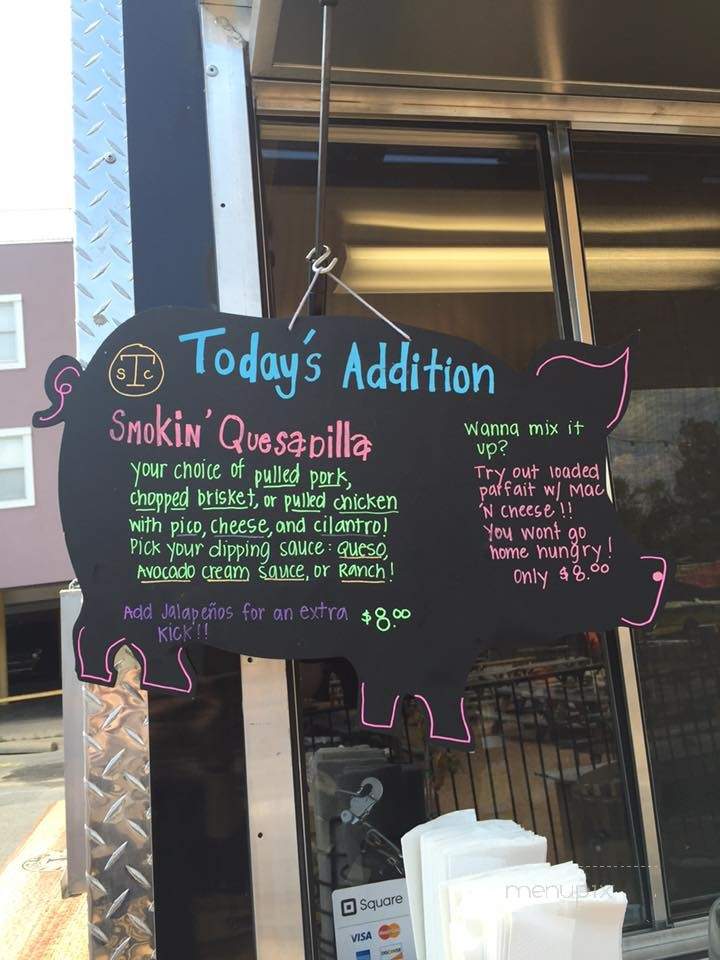 STC
Today's Addition
Smokin' Quesadilla
your choice of pulled pork,
chopped brisket, or pulled chicken
with pico, cheese, and cilantro!
Pick your dipping sauce: Queso,
Avocado cream sauce, or Ranch!
Add Jalapeños for an extra
Kick!!
$8.00
Wanna mix it
up?
Try out loaded
parfait w/ Mac
'N cheese!!
You wont go
home hungry!
Only $8.00
Square
VISA
DISCOVER
menupix